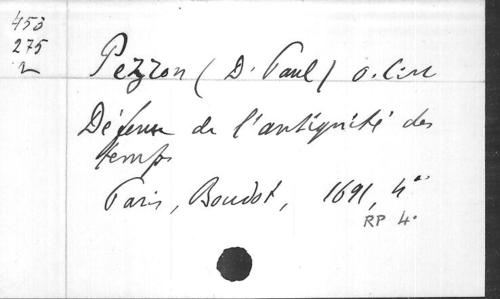 453
275
Pezron (D. Paul) o. Cist
Défense de l'antiquité des
temps
Paris, Boudot, 1691, 4°
RP 4°